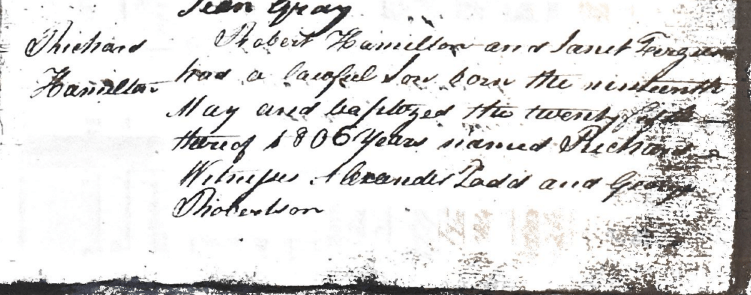 Jean Gray
Richard Robert Hamilton and Janet Ferguson
Hamilton had a lawful Son born the nineteenth
May and baptized the twenty fifth
thereof 1806 years named Richard
Witnesses Alexander Todd and George
Robertson